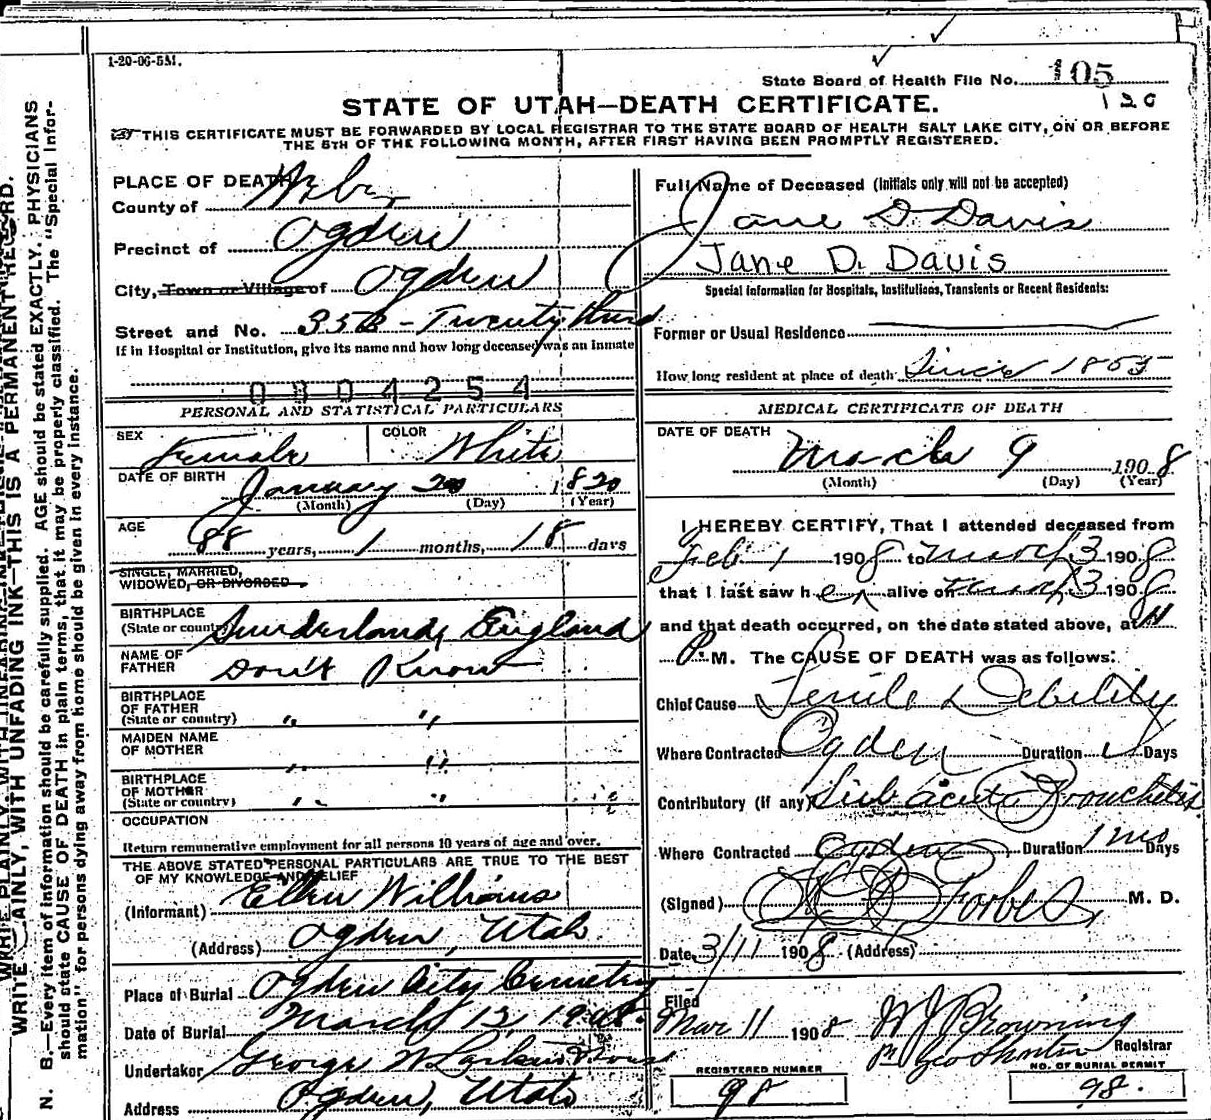 1-20-06-5M.
State Board of Health File No. 105
120
STATE OF UTAH—DEATH CERTIFICATE.
THIS CERTIFICATE MUST BE FORWARDED BY LOCAL REGISTRAR TO THE STATE BOARD OF HEALTH SALT LAKE CITY, ON OR BEFORE
THE 5TH OF THE FOLLOWING MONTH, AFTER FIRST HAVING BEEN PROMPTLY REGISTERED.
PLACE OF DEATH
County of Weber
Precinct of Ogden
City, Town or Village of Ogden
Street and No. 352 - Twenty third
If in Hospital or Institution, give its name and how long deceased was an Inmate
0804254
PERSONAL AND STATISTICAL PARTICULARS
SEX Female COLOR White
DATE OF BIRTH January 20 1820
(Month) (Day) (Year)
AGE 88 years, 1 months, 18 days
SINGLE, MARRIED,
WIDOWED, OR DIVORCED
BIRTHPLACE
(State or country) Sunderland, England
NAME OF
FATHER Don't Know
BIRTHPLACE
OF FATHER
(State or country) " "
MAIDEN NAME
OF MOTHER " "
BIRTHPLACE
OF MOTHER
(State or country) " "
OCCUPATION
Return remunerative employment for all persons 10 years of age and over.
THE ABOVE STATED PERSONAL PARTICULARS ARE TRUE TO THE BEST
OF MY KNOWLEDGE AND BELIEF
(Informant) Ellen Williams
(Address) Ogden, Utah.
Place of Burial Ogden City Cemetery
Date of Burial March 12, 1908.
Undertaker George W Larkin & Sons
Address Ogden, Utah
Full Name of Deceased (Initials only will not be accepted)
Jane D Davis
Jane D. Davis
Special Information for Hospitals, Institutions, Transients or Recent Residents:
Former or Usual Residence
How long resident at place of death Since 1853
MEDICAL CERTIFICATE OF DEATH
DATE OF DEATH
March 9 1908
(Month) (Day) (Year)
I HEREBY CERTIFY, That I attended deceased from
Feb 1 1908 to March 3 1908
that I last saw her alive on March 3 1908
and that death occurred, on the date stated above, at
P. M. The CAUSE OF DEATH was as follows:
Chief Cause Senile Debility
Where Contracted Ogden Duration Days
Contributory (if any) Sub acute Bronchitis
Where Contracted Ogden Duration 1 mo Days
(Signed) Forbes, M. D.
Date 3/11 1908 (Address)
Filed
Mar 11 1908 W J Browning
Registrar
REGISTERED NUMBER
98
NO. OF BURIAL PERMIT
98.
WRITE PLAINLY, WITH UNFADING INK—THIS IS A PERMANENT RECORD.
N. B.—Every item of Information should be carefully supplied. AGE should be stated EXACTLY. PHYSICIANS
should state CAUSE OF DEATH in plain terms, that it may be properly classified. The "Special Infor-
mation" for persons dying away from home should be given in every instance.